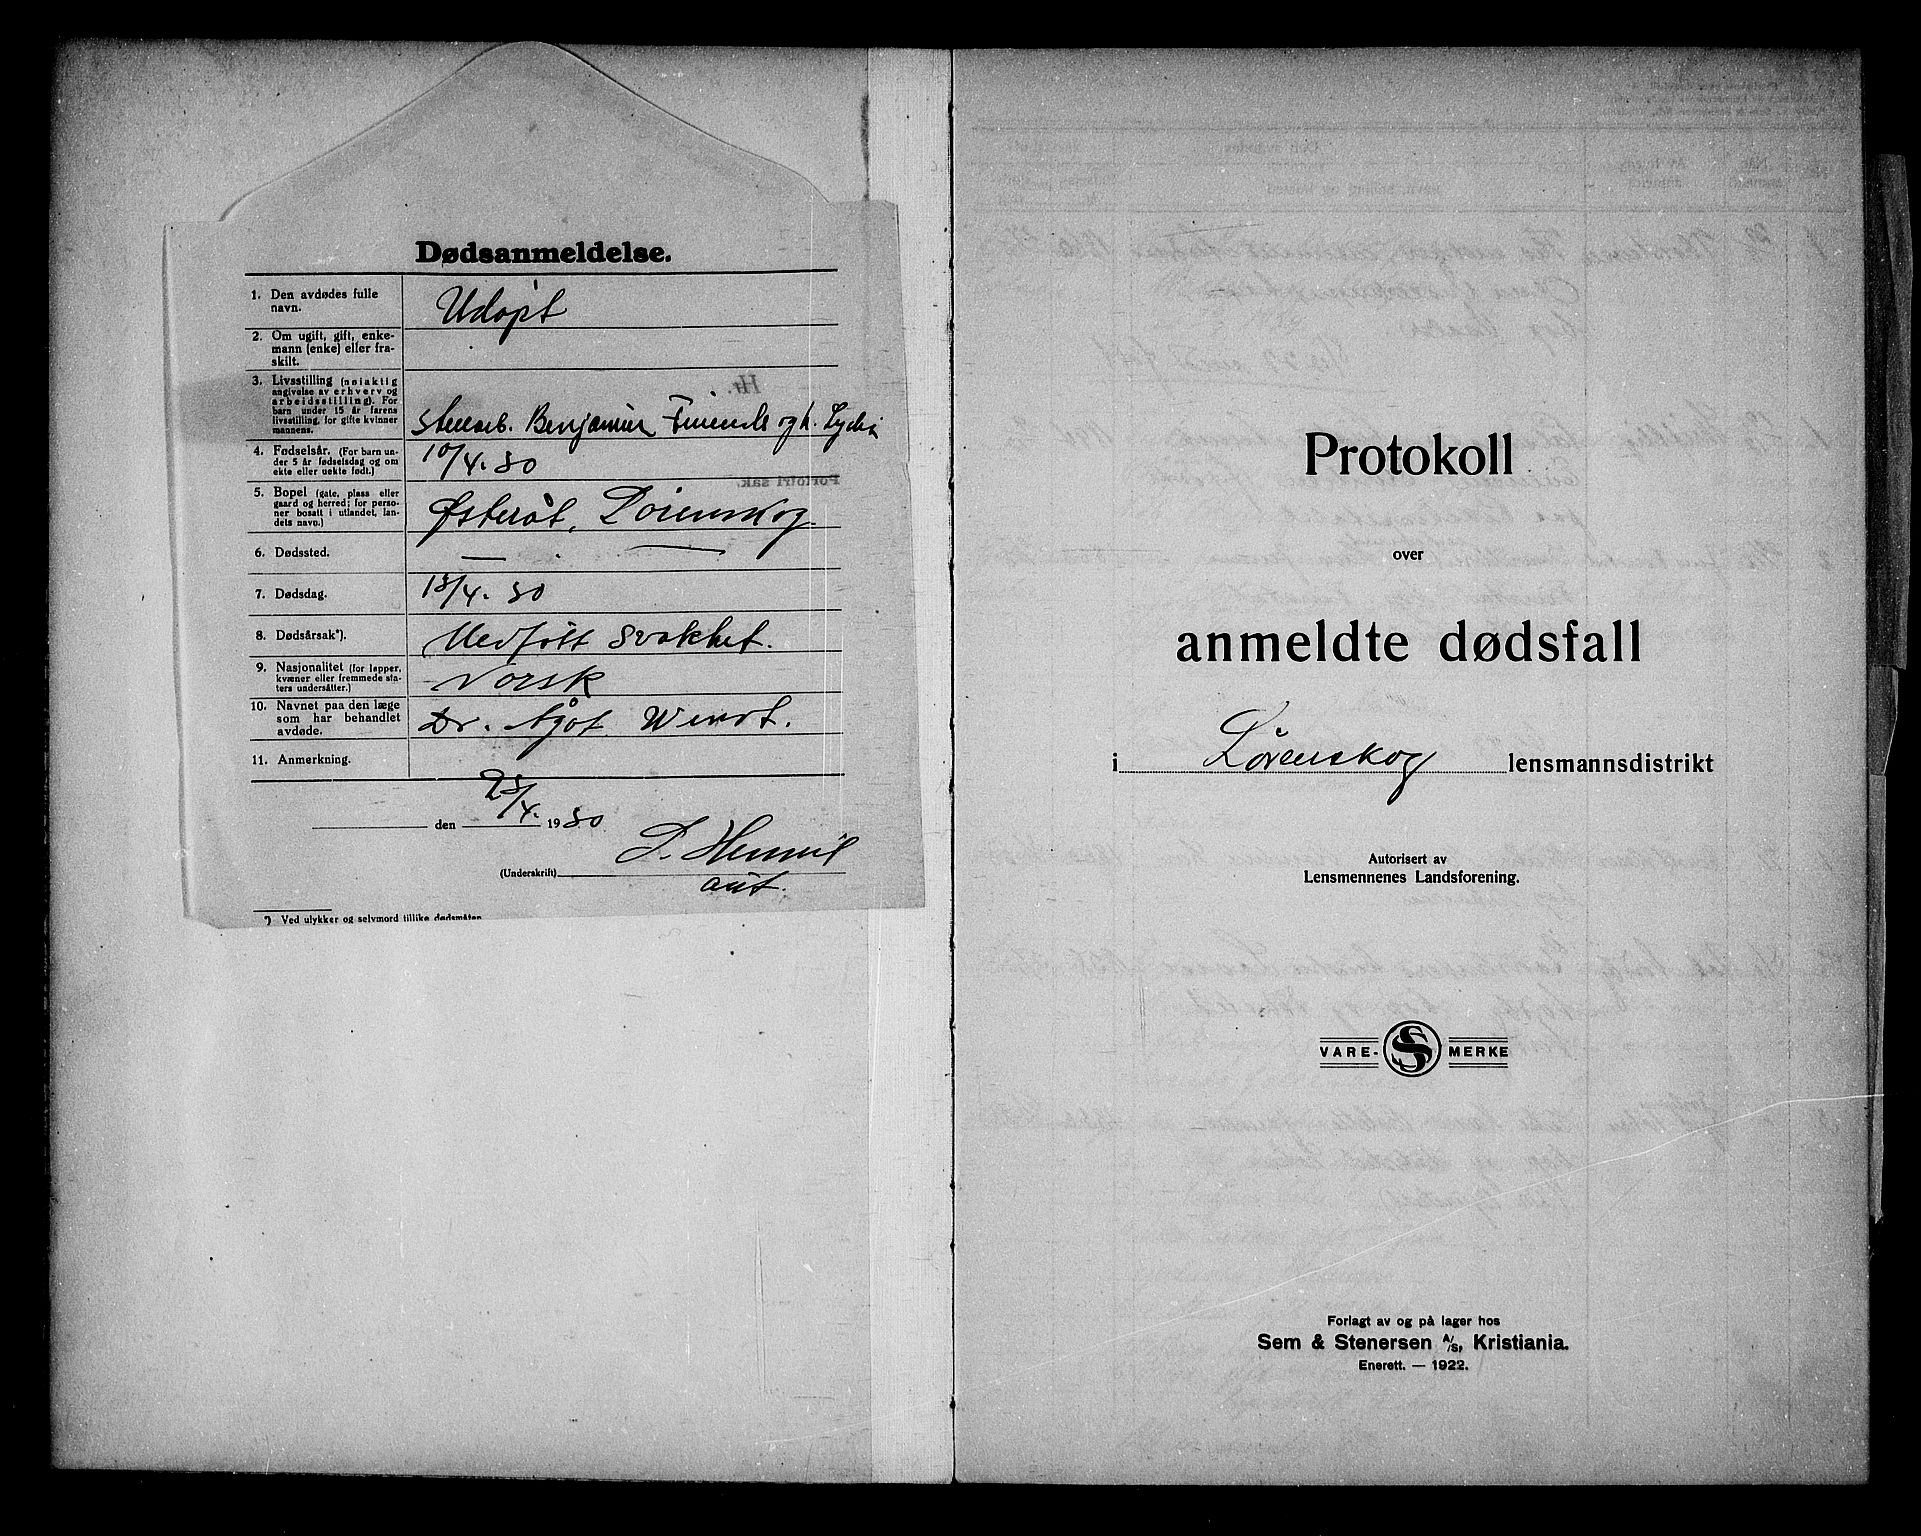 Dødsanmeldelse.
1. Den avdødes fulle
navn.
Udøpt
2. Om ugift, gift, enke-
mann (enke) eller fra-
skilt.
3. Livsstilling (nøiaktig
angivelse av erhverv og
arbeidsstilling). For
barn under 15 år farens
livsstilling, for gifte kvinner
mannens.
Stensarb. Benjamin og h. Lydia
4. Fødselsår. (For barn un-
der 5 år fødselsdag og om
ekte eller uekte født.)
10/4. 30
5. Bopel (gate, plass eller
gaard og herred; for perso-
ner bosatt i utlandet, lan-
dets navn.)
Østerøt, Lørenskog
6. Dødssted.
—
7. Dødsdag.
13/4. 30
8. Dødsårsak*).
Medføtt svakhet.
9. Nasjonalitet (for lapper,
kvæner eller fremmede sta-
ters undersåtter.)
Norsk
10. Navnet paa den læge
som har behandlet
avdøde.
Dr. Ågot Wendt.
11. Anmerkning.
den 25/4. 1930
(Underskrift)
ass.
*) Ved ulykker og selvmord tillike dødsmåten
Hr.
Portofri sak.
Protokoll
over
anmeldte dødsfall
i Lørenskog lensmannsdistrikt
Autorisert av
Lensmennenes Landsforening.
VARE- S MERKE
Forlagt av og på lager hos
Sem & Stenersen A/S, Kristiania.
Enerett. — 1922.